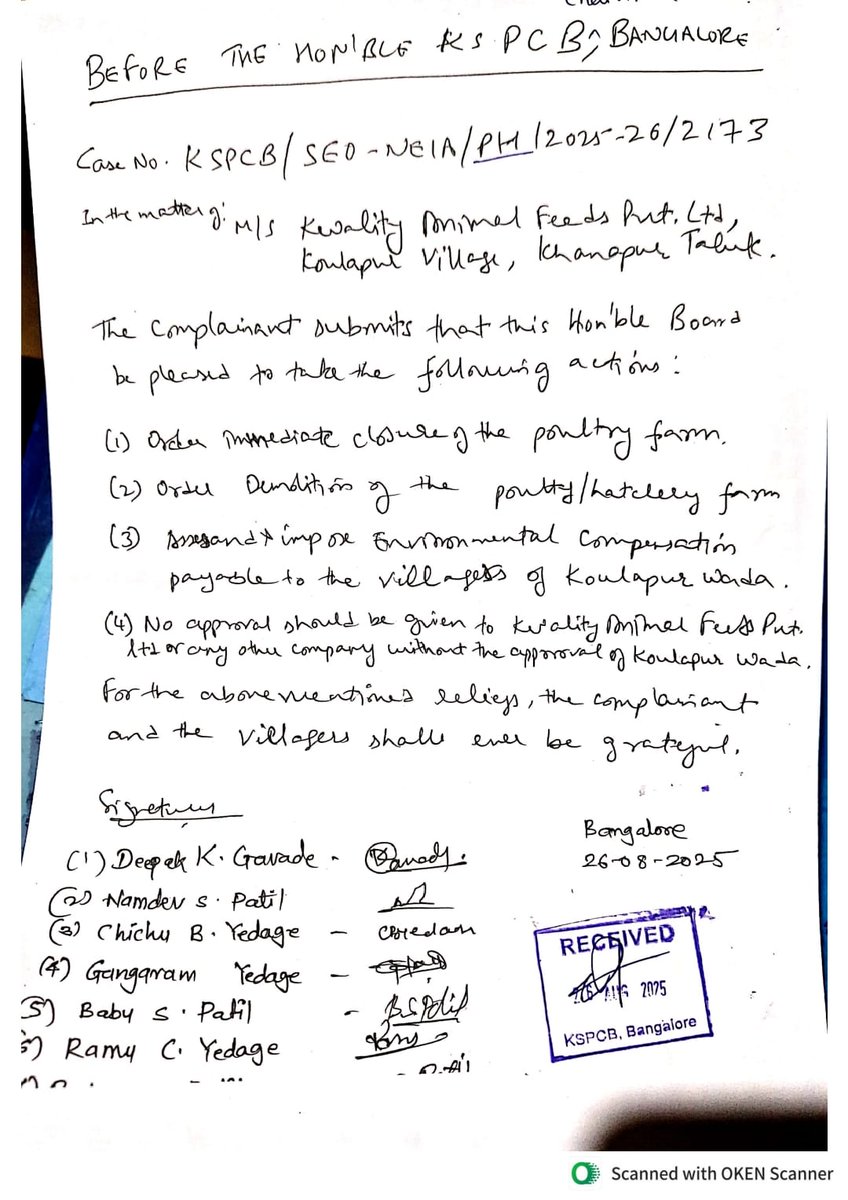 BEFORE THE HON'BLE KSPCB, BANGALORE
Case No. KSPCB/SEO-NEIA/PH/2025-26/2173
In the matter of: M/S Kwality Animel Feeds Put. Ltd,
Koulapur Village, Khanapur Taluk.
The complainant submits that this Hon'ble Board
be pleased to take the following actions:
(1) Order immediate closure of the poultry farm.
(2) Order Demolition of the poultry/hatchery farm
(3) Assess and impose Environmental Compensation
payable to the villagers of Koulapur Wada.
(4) No approval should be given to Kwality Animel Feeds Put.
Ltd or any other company without the approval of Koulapur Wada.
For the above mentioned reliefs, the complainant
and the villagers shall ever be grateful.
Signatures
Bangalore
26-08-2025
(1) Deepak K. Gavade -
(2) Namdev S. Patil
(3) Chichu B. Yedage -
(4) Gangaram Yedage -
(5) Baby S. Patil - B S Patil
6) Ramu C. Yedage
RECEIVED
26 AUG 2025
KSPCB, Bangalore
Scanned with OKEN Scanner